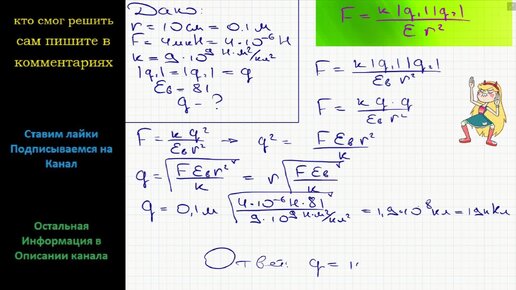 кто смог решить
сам пишите в
комментариях
Ставим лайки
Подписываемся на
Канал
Остальная
Информация в
Описании канала
Дано:
r = 10 см = 0.1 м
F = 4 мкН = 4·10⁻⁶ Н
k = 9·10⁹ Н·м²/кл²
|q₁| = |q₂| = q
Ɛв = 81
q - ?
F = k|q₁||q₂| / Ɛ r²
F = k|q₁||q₂| / Ɛв r²
F = k q·q / Ɛв r²
F = k q² / Ɛв r² → q² = F Ɛв r² / k
q = √(F Ɛв r² / k) = r √(F Ɛв / k)
q = 0,1 м √(4·10⁻⁶ Н·81 / 9·10⁹ Н·м²/кл²) = 1,9·10⁻⁸ кл = 19 нкл
Ответ: q = 1